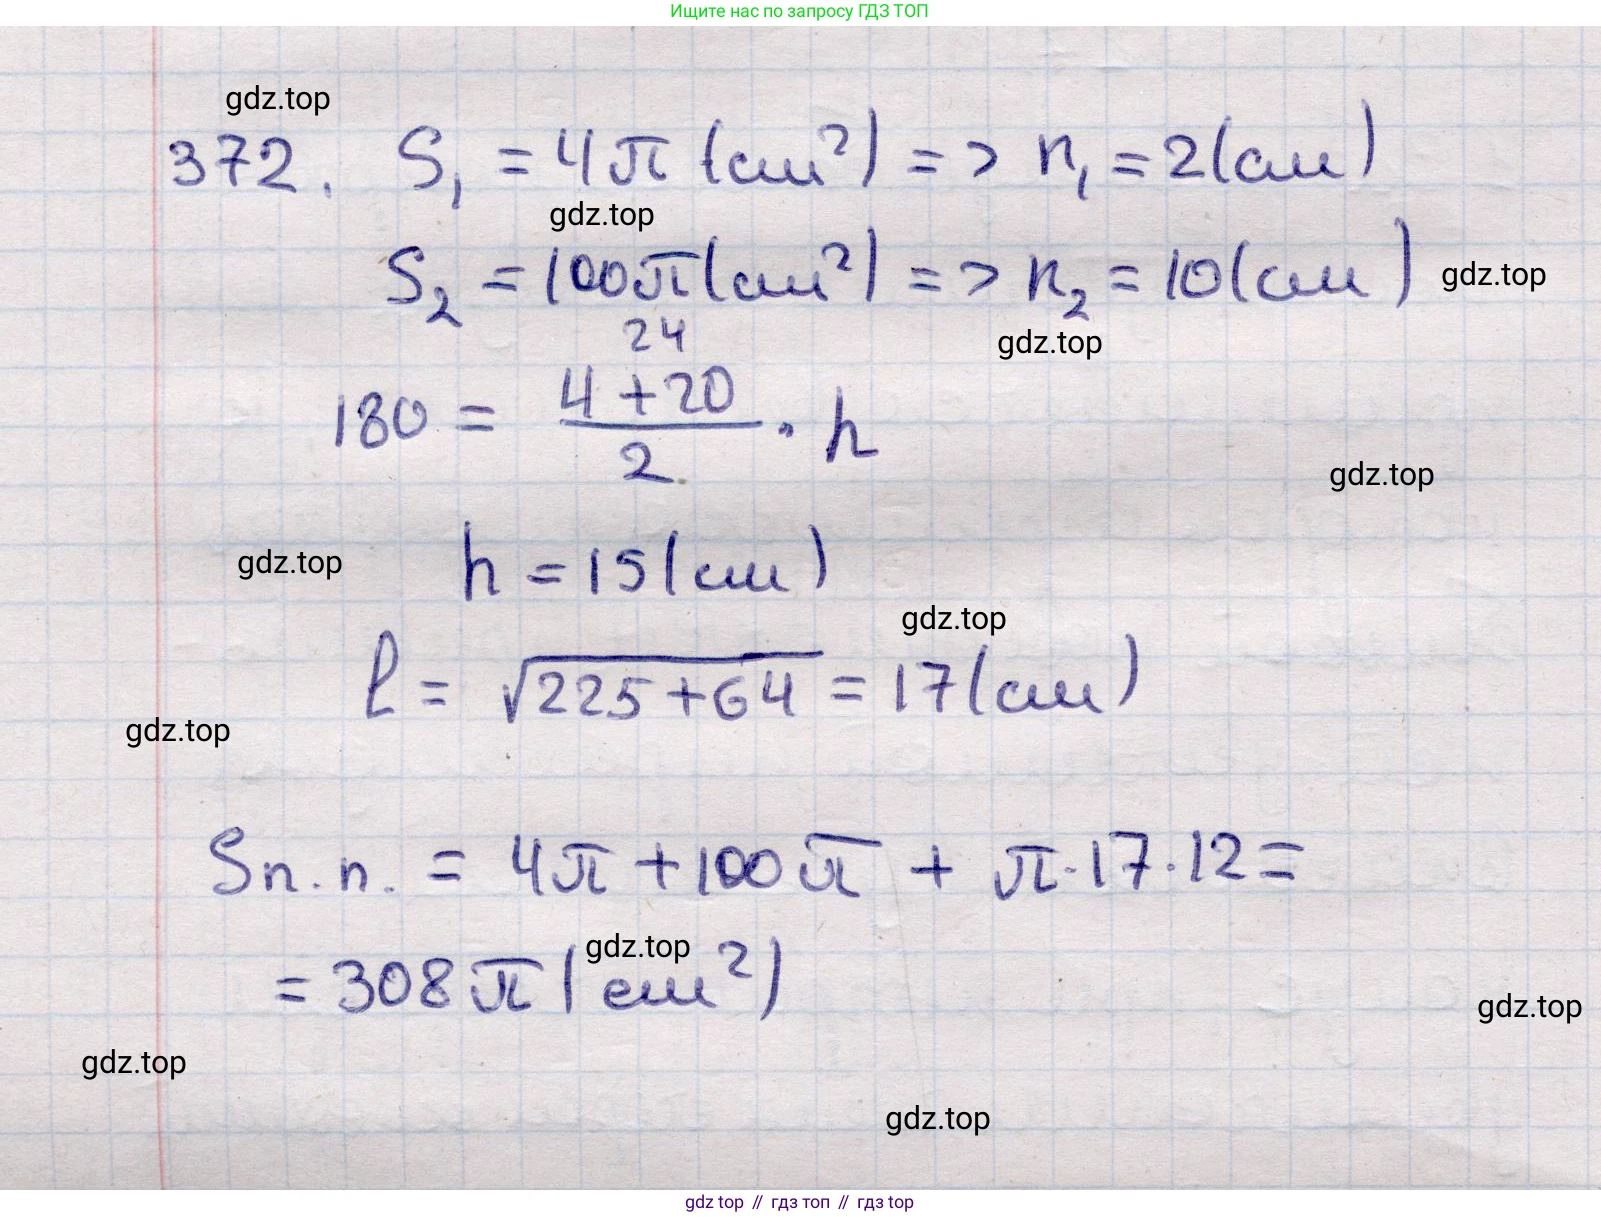 Ищите нас по запросу ГДЗ ТОП
gdz.top
372. S₁ = 4π (см²) => r₁ = 2 (см)
gdz.top
S₂ = 100π (см²) => r₂ = 10 (см)
gdz.top
gdz.top
24
180 = (4 + 20)/2 · h
gdz.top
h = 15 (см)
gdz.top
gdz.top
l = √(225 + 64) = 17 (см)
gdz.top
Sп.п. = 4π + 100π + π · 17 · 12 =
gdz.top
= 308π (см²)
gdz.top
gdz.top
gdz.top
gdz top // гдз топ // гдз top